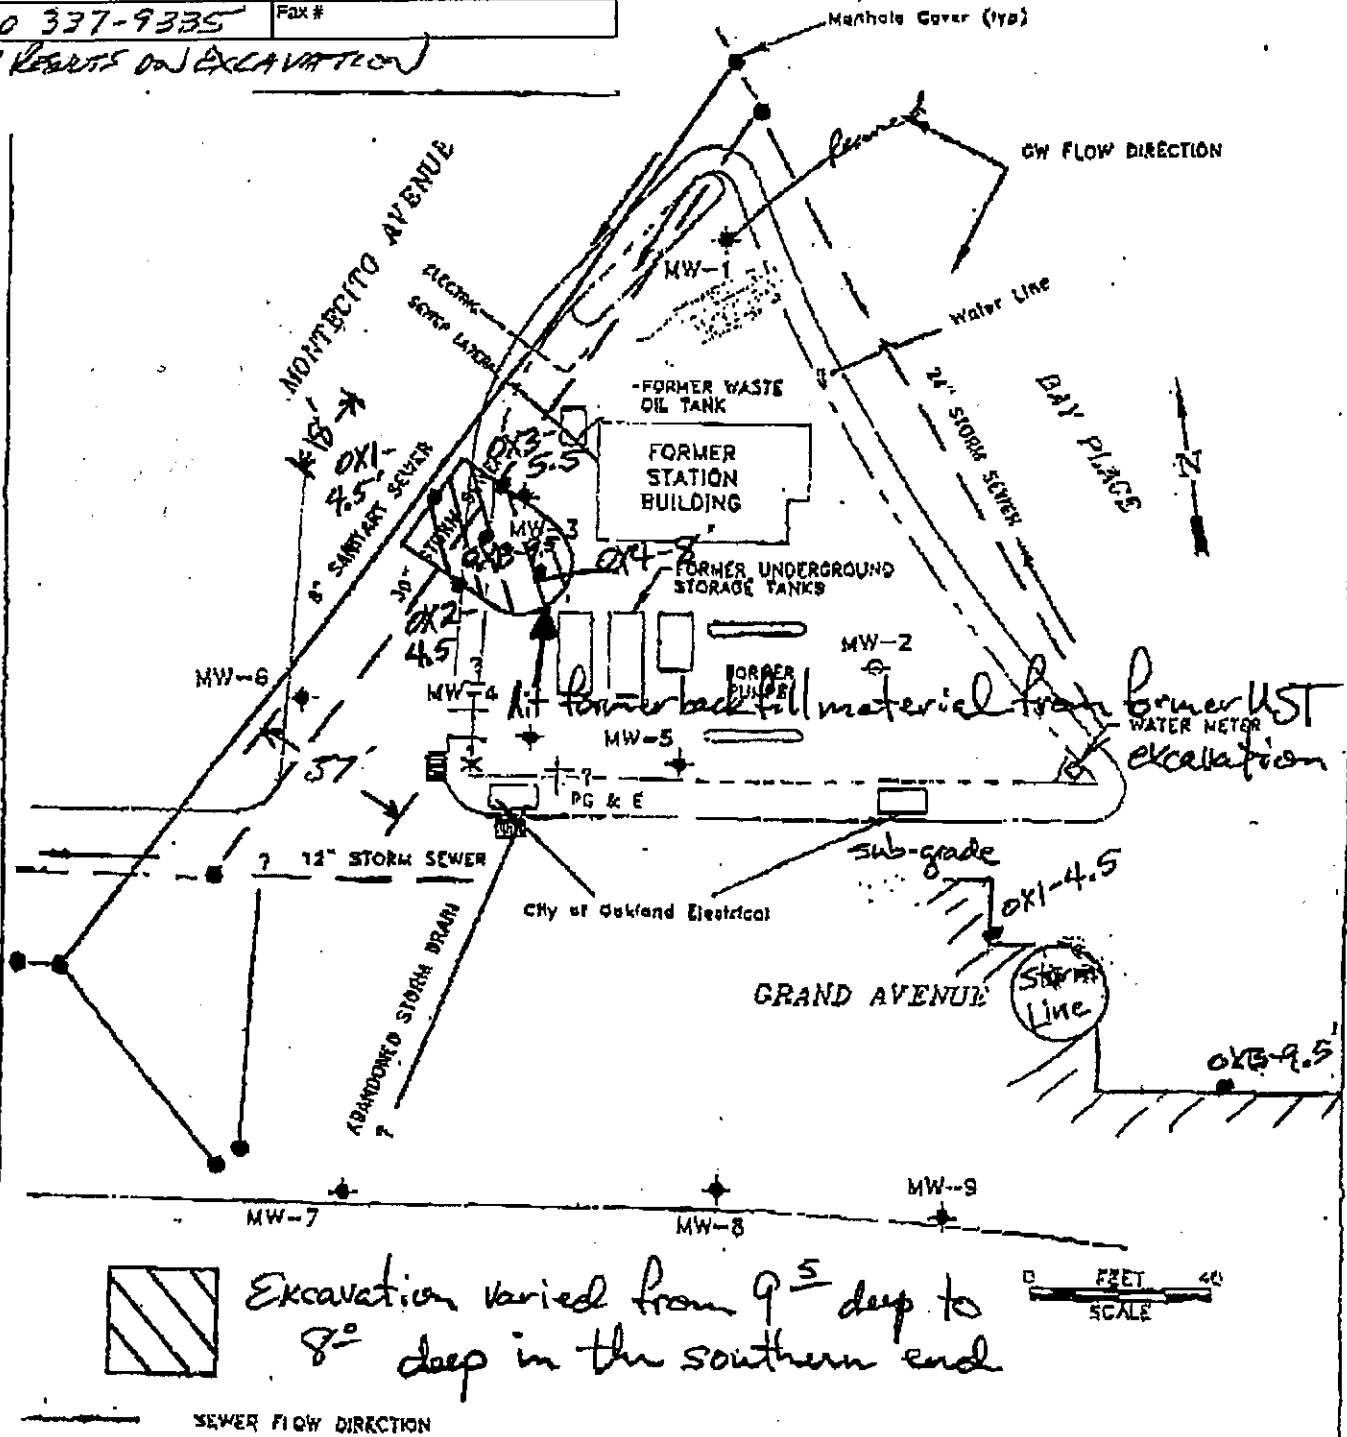 0 337-9335
Fax #
RESULTS ON EXCAVATION
Manhole Cover (typ)
GW FLOW DIRECTION
MONTECITO AVENUE
MW-1
Water Line
ELECTRIC
SEWER LATERAL
24" STORM SEWER
BAY PLACE
N
FORMER WASTE
OIL TANK
FORMER
STATION
BUILDING
18'
OX1-
4.5'
OX3-
5.5
8" SANITARY SEWER
30" STORM SEWER
MW-3
OX4-8'
FORMER UNDERGROUND
STORAGE TANKS
OX2-
4.5
MW-2
MW-6
MW-4
FORMER
PUMPS
hit former backfill material from former UST
excavation
WATER METER
MW-5
57'
?
PG & E
? 12" STORM SEWER
sub-grade
OX1-4.5
City of Oakland Electrical
ABANDONED STORM DRAIN
?
GRAND AVENUE
Storm
Line
MW-7
MW-8
MW-9
Excavation varied from 9 5 deep to
8 0 deep in the southern end
0 FEET 40
SCALE
SEWER FLOW DIRECTION